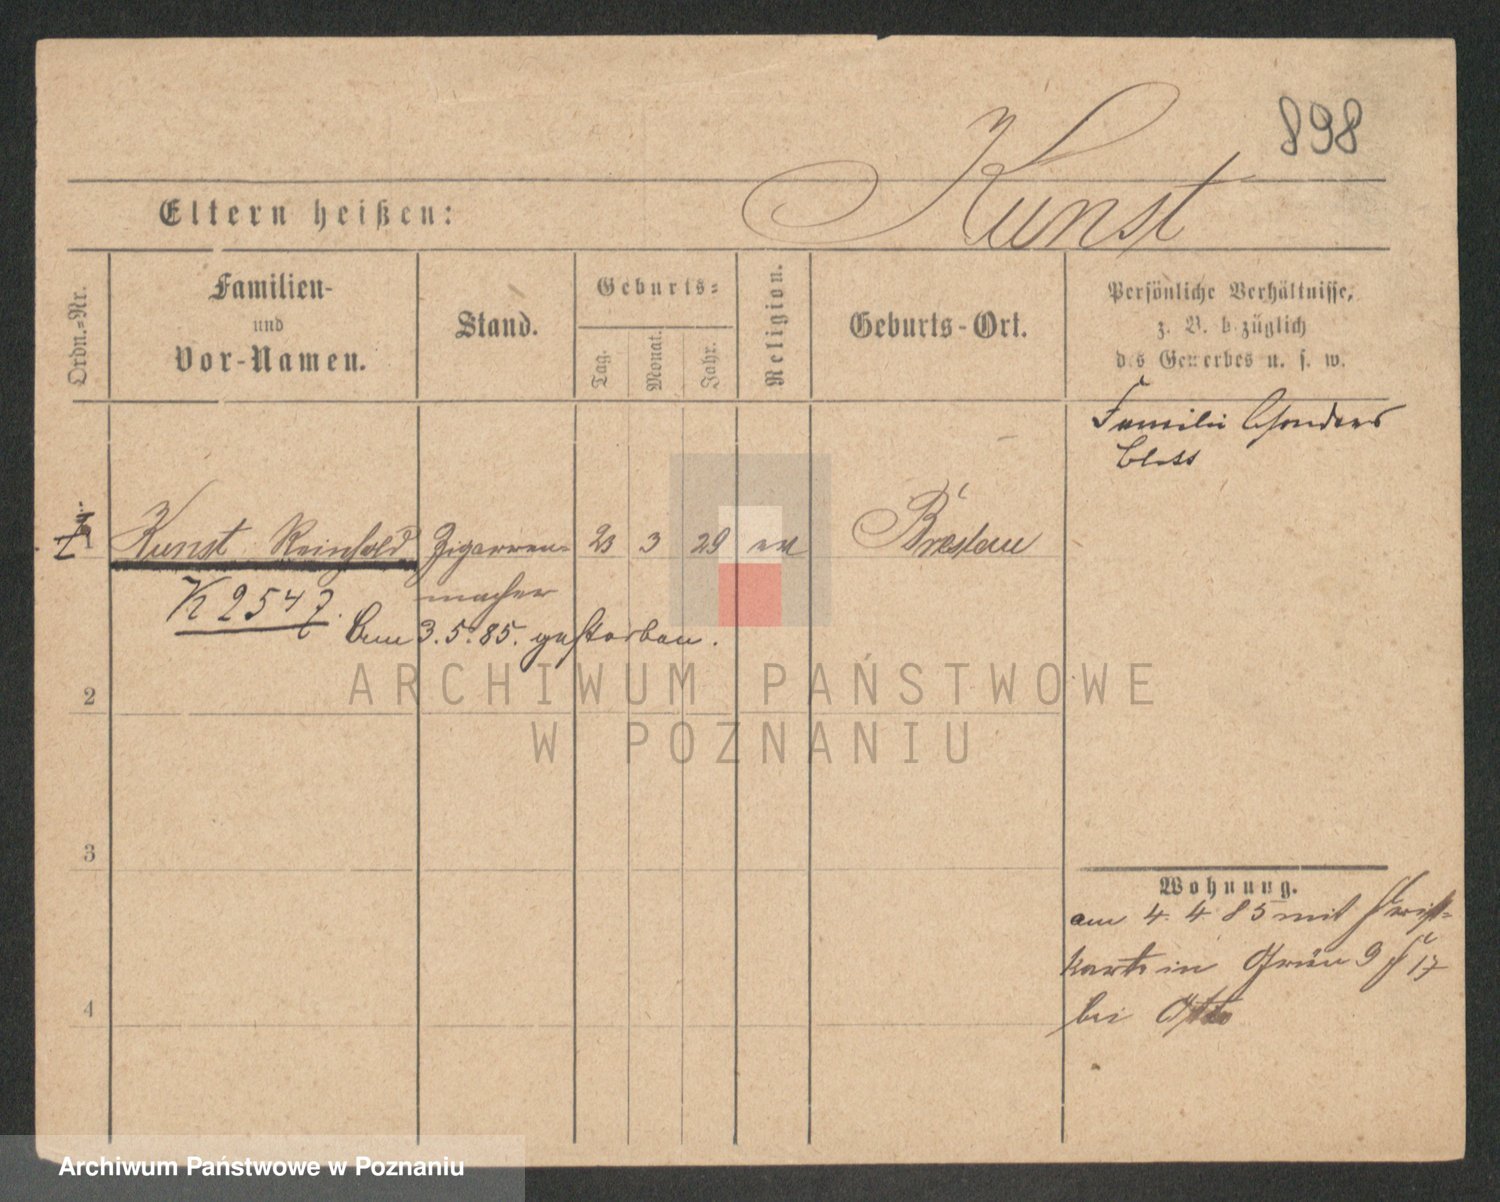 898
Kunst
Eltern heißen:
Ordn.=Nr.
Familien-
und
Vor-Namen.
Stand.
Geburts=
Tag.
Monat.
Jahr.
Religion.
Geburts-Ort.
Persönliche Verhältnisse,
z. B. bezüglich
des Gewerbes u. s. w.
Familie
1
Kunst Reinhold Zigarren= 23 3 29 ev Breslau
macher
K 2547
am 3.5.85. gestorben.
2
3
4
Wohnung.
am 4. 4. 85 mit
karte in 17
bei Otto
ARCHIWUM PAŃSTWOWE
W POZNANIU
Archiwum Państwowe w Poznaniu